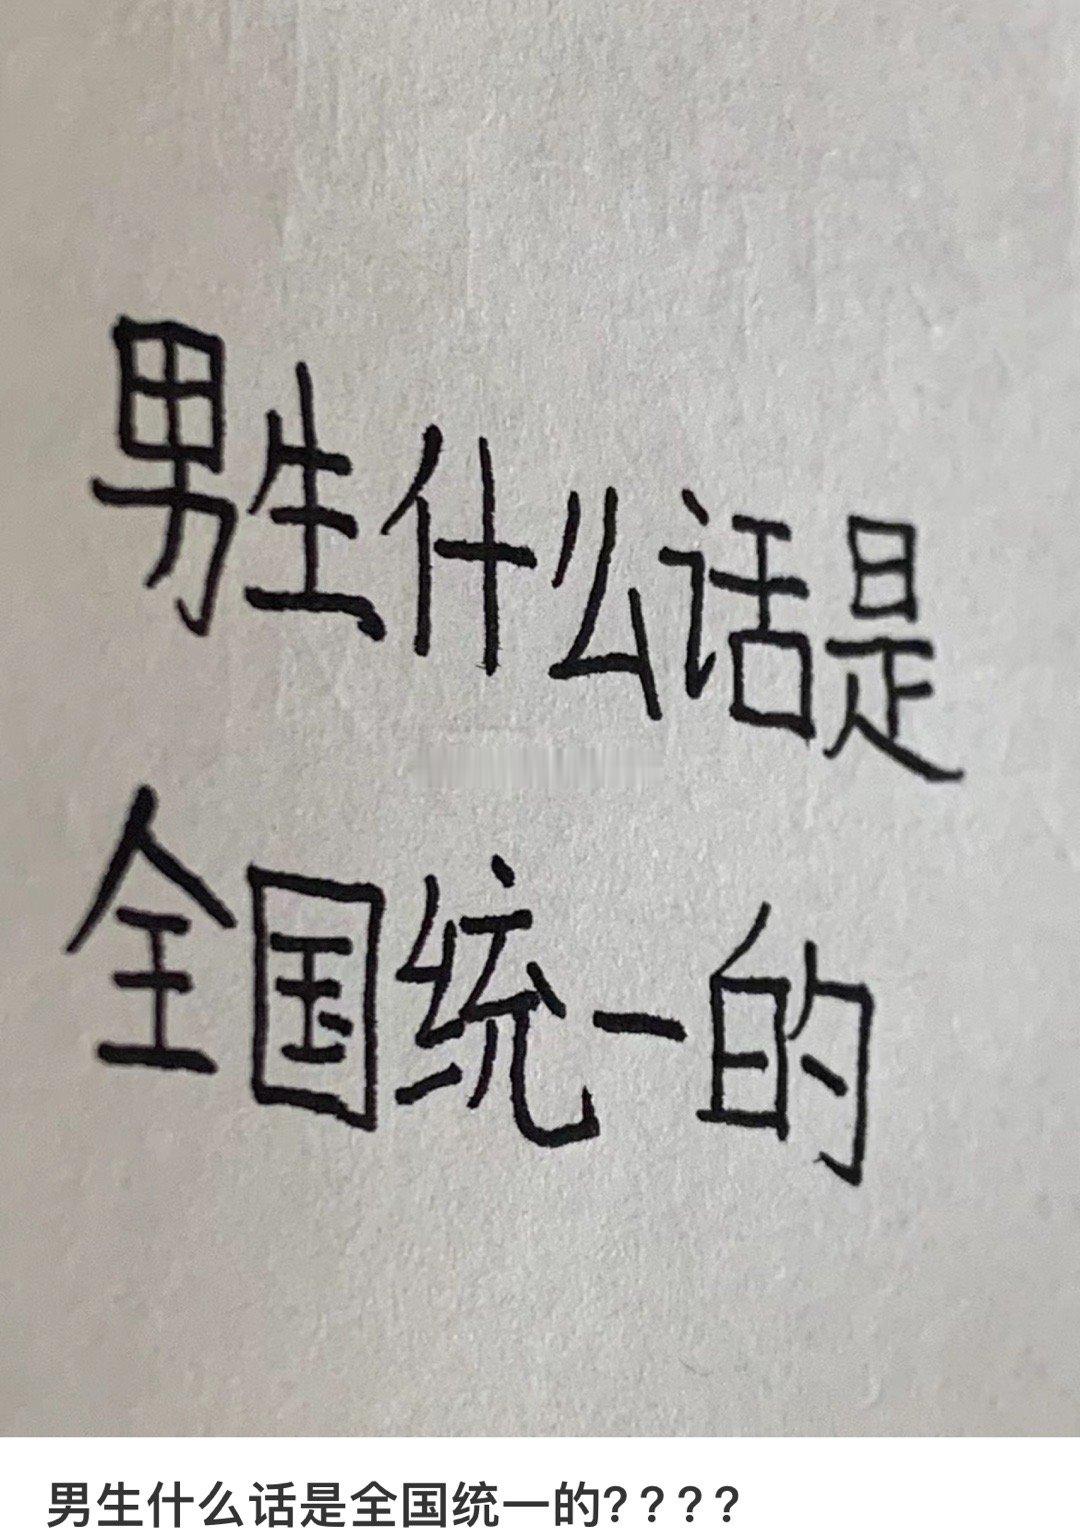 男生什么话是
全国统一的
男生什么话是全国统一的????